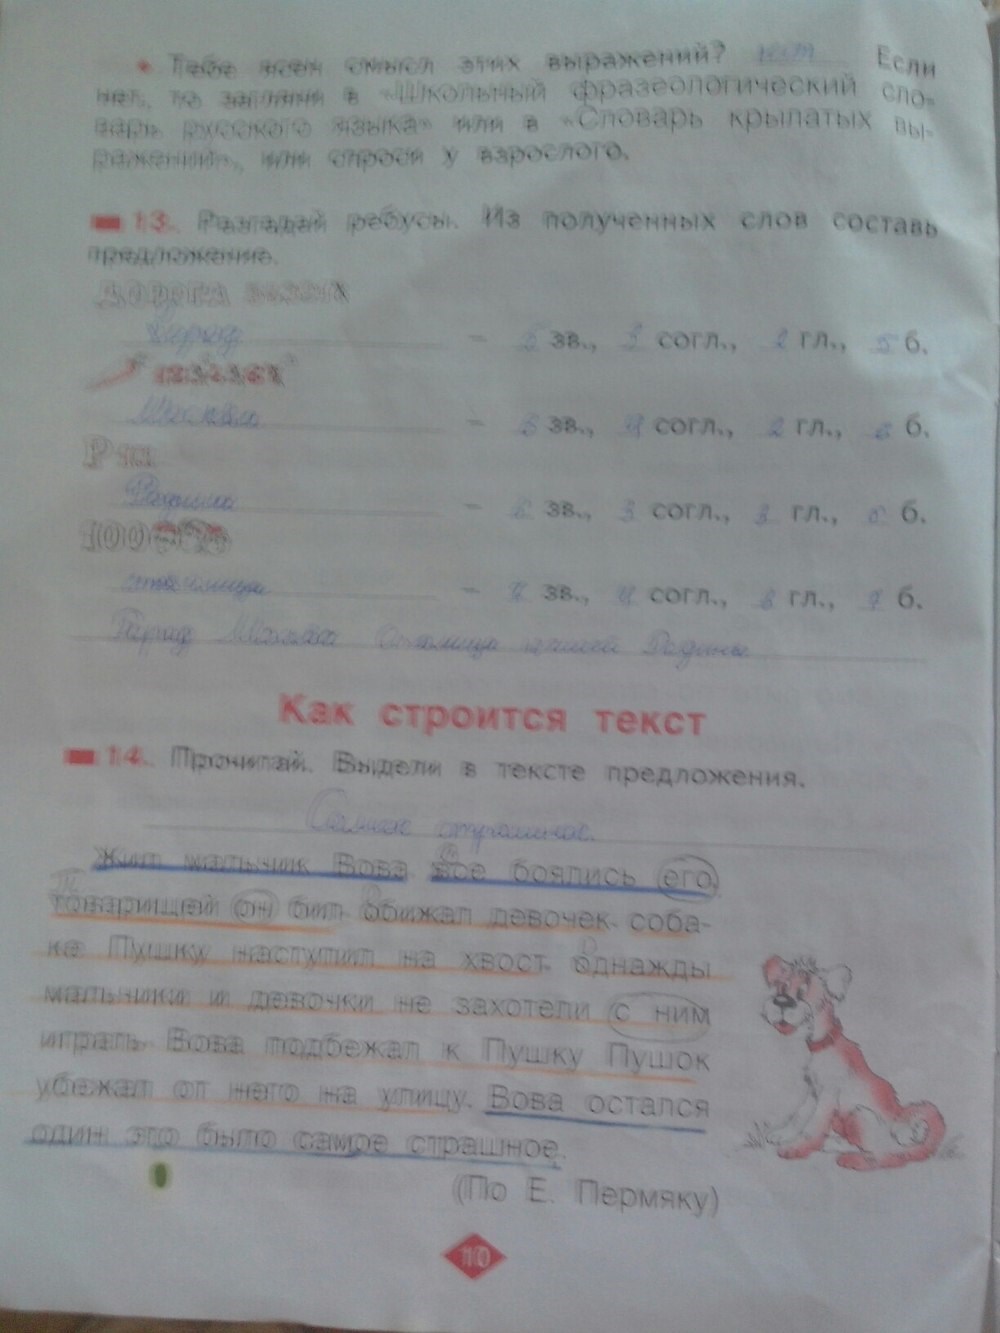 • Тебе ясен смысл этих выражений? нет Если
нет, то загляни в «Школьный фразеологический сло-
варь русского языка» или в «Словарь крылатых вы-
ражений», или спроси у взрослого.
13. Разгадай ребусы. Из полученных слов составь
предложение.
– зв., 3 согл., 2 гл., 5 б.
– зв., 4 согл., 2 гл., 6 б.
Р
– зв., 3 согл., 3 гл., 6 б.
100
столица – зв., 4 согл., 3 гл., 7 б.
Город Москва столица нашей Родины
Как строится текст
14. Прочитай. Выдели в тексте предложения.
Самое страшное.
Жил мальчик Вова все боялись его
товарищей он бил обижал девочек соба-
ке Пушку наступил на хвост однажды
мальчики и девочки не захотели с ним
играть Вова подбежал к Пушку Пушок
убежал от него на улицу. Вова остался
один это было самое страшное.
(По Е. Пермяку)
10